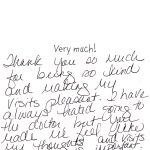 Very much!
Thank you so much
for being so kind
and making my
visits pleasant. I have
always hated going to
the doctor but you
made me feel like
my thoughts and visits
important.